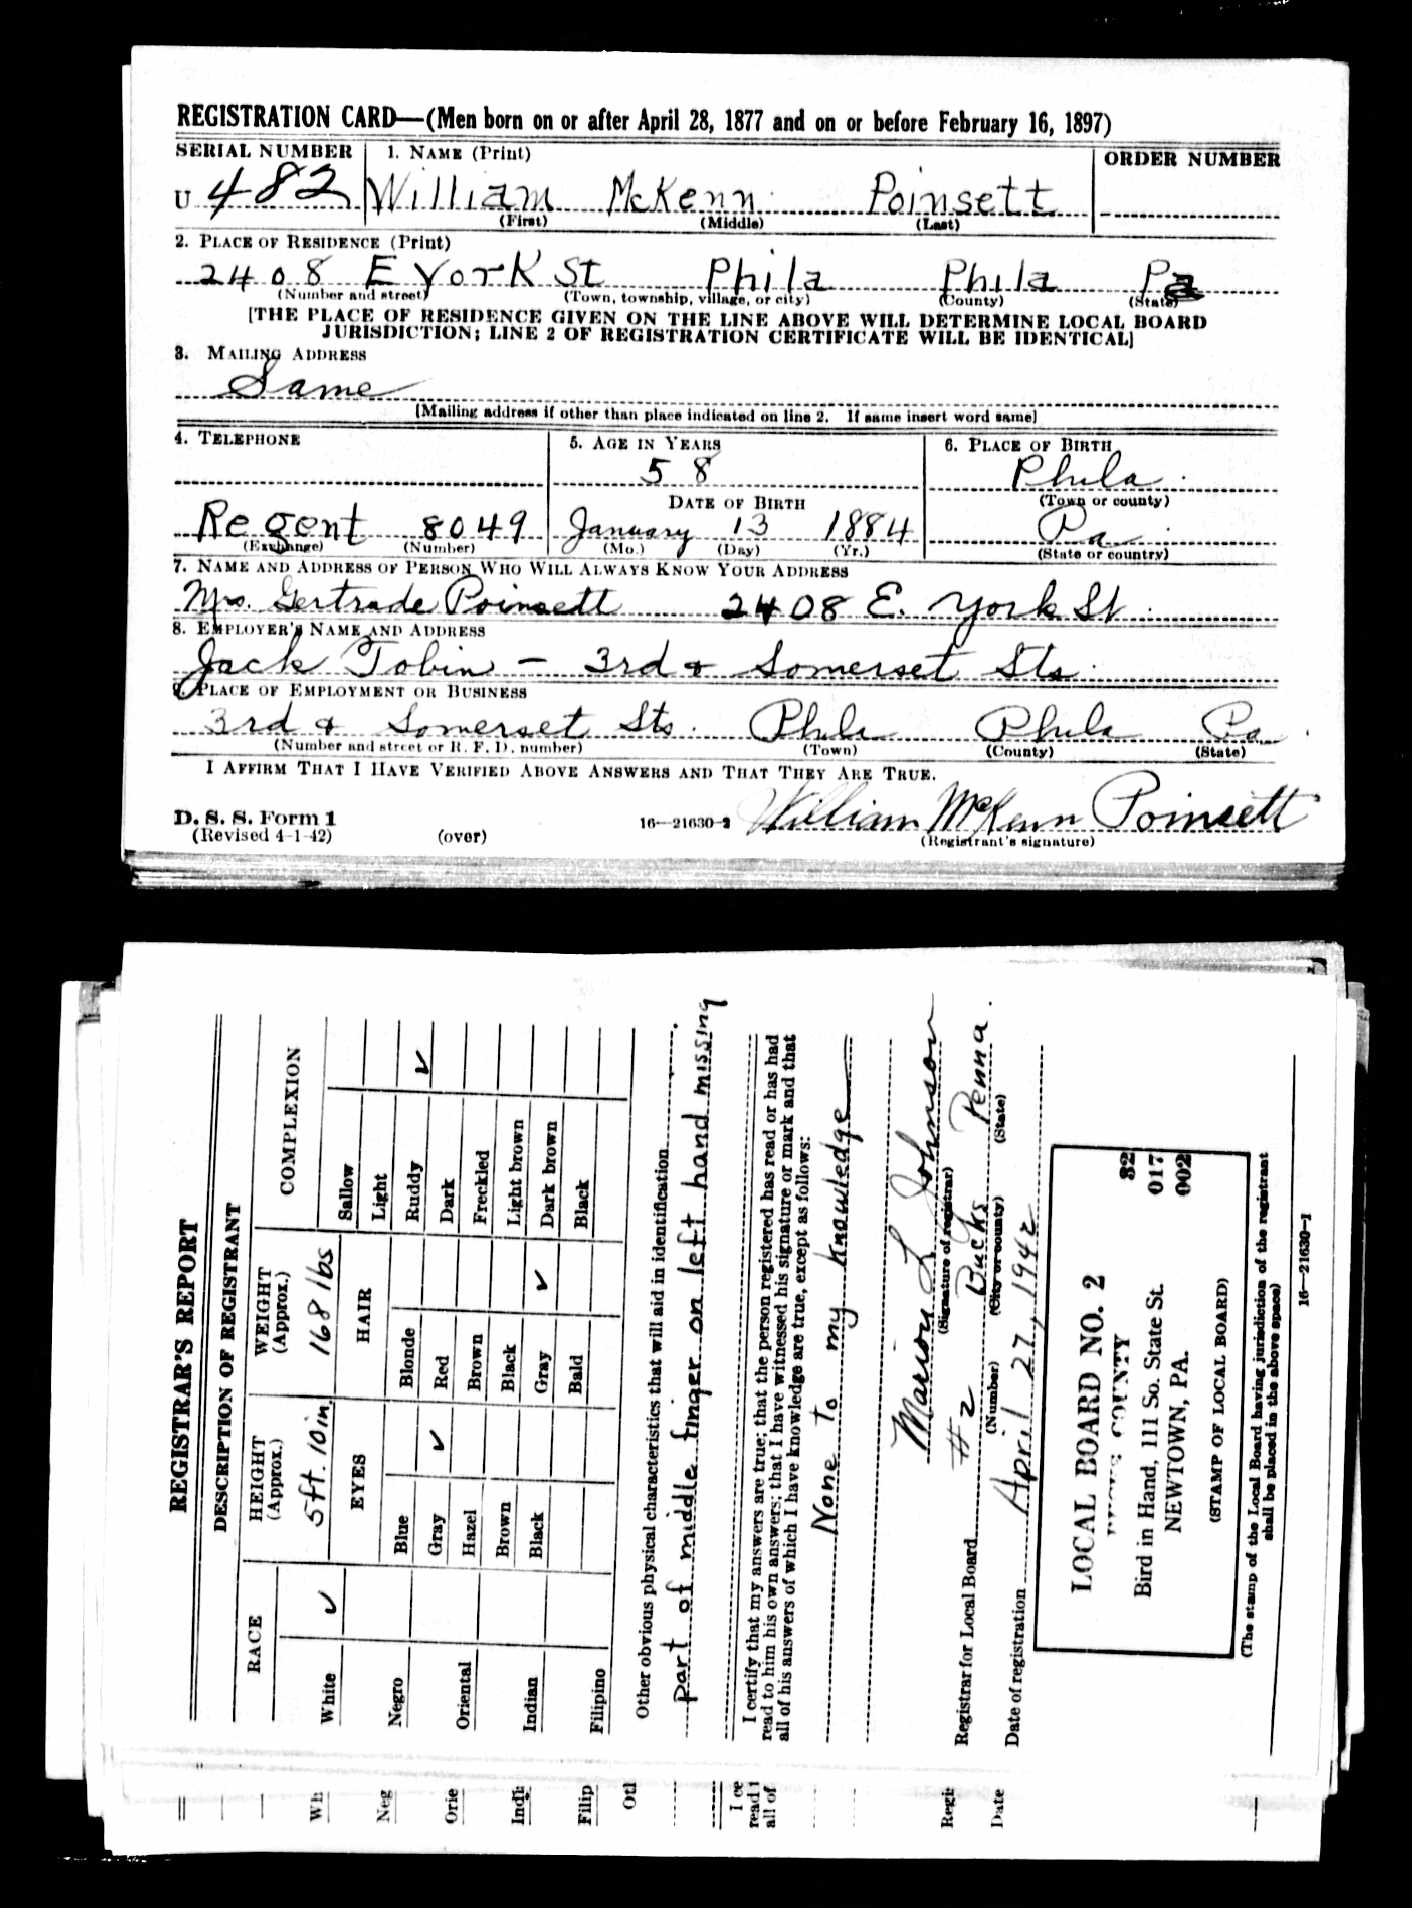 REGISTRATION CARD—(Men born on or after April 28, 1877 and on or before February 16, 1897)
SERIAL NUMBER 1. NAME (Print) ORDER NUMBER
U 482 William McKenn Poinsett
(First) (Middle) (Last)
2. PLACE OF RESIDENCE (Print)
2408 E York St Phila Phila Pa
(Number and street) (Town, township, village, or city) (County) (State)
[THE PLACE OF RESIDENCE GIVEN ON THE LINE ABOVE WILL DETERMINE LOCAL BOARD
JURISDICTION; LINE 2 OF REGISTRATION CERTIFICATE WILL BE IDENTICAL]
3. MAILING ADDRESS
Same
[Mailing address if other than place indicated on line 2. If same insert word same]
4. TELEPHONE 5. AGE IN YEARS 6. PLACE OF BIRTH
58 Phila.
DATE OF BIRTH (Town or county)
Regent 8049 January 13 1884 Pa.
(Exchange) (Number) (Mo.) (Day) (Yr.) (State or country)
7. NAME AND ADDRESS OF PERSON WHO WILL ALWAYS KNOW YOUR ADDRESS
Mrs. Gertrade Poinsett 2408 E. York St.
8. EMPLOYER'S NAME AND ADDRESS
Jack Tobin – 3rd & Somerset Sts.
9. PLACE OF EMPLOYMENT OR BUSINESS
3rd & Somerset Sts. Phila Phila Pa.
(Number and street or R. F. D. number) (Town) (County) (State)
I AFFIRM THAT I HAVE VERIFIED ABOVE ANSWERS AND THAT THEY ARE TRUE.
D. S. S. Form 1
(Revised 4-1-42) (over) 16—21630-2 William McKenn Poinsett
(Registrant's signature)
REGISTRAR'S REPORT
DESCRIPTION OF REGISTRANT
RACE HEIGHT (Approx.) WEIGHT (Approx.) COMPLEXION
White ✓ 5ft. 10in. 168 lbs Sallow
EYES HAIR Light
Negro Blue Blonde Ruddy ✓
Gray ✓ Red Dark
Oriental Hazel Brown Freckled
Brown Black Light brown
Indian Black Gray ✓ Dark brown
Bald Black
Filipino
Other obvious physical characteristics that will aid in identification
part of middle finger on left hand missing
I certify that my answers are true; that the person registered has read or has had
read to him his own answers; that I have witnessed his signature or mark and that
all of his answers of which I have knowledge are true, except as follows:
None to my knowledge
Marion L Johnson
(Signature of registrar)
Registrar for Local Board #2 Bucks Penna.
(Number) (City or county) (State)
Date of registration April 27, 1942
LOCAL BOARD NO. 2 32
COUNTY 017
Bird in Hand, 111 So. State St. 002
NEWTOWN, PA.
(STAMP OF LOCAL BOARD)
(The stamp of the Local Board having jurisdiction of the registrant
shall be placed in the above space)
16—21630-1
Wh
Neg
Orie
Indi
Filip
Otl
I ce
read t
all of
Regi
Date